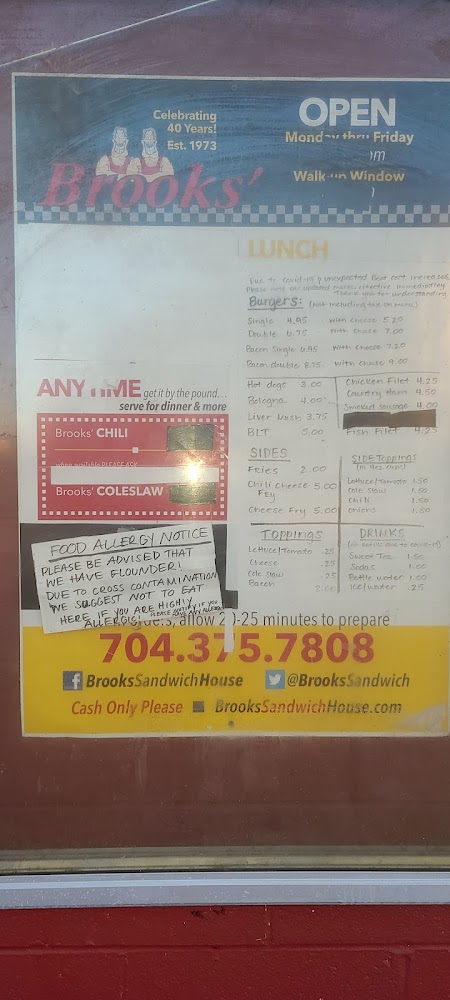 Celebrating
40 Years!
Est. 1973
Brooks'
OPEN
Monday thru Friday
Walk-up Window
LUNCH
Due to covid-19 & unexpected Beef cost increases
Please note our updated menu, effective immediatley
Thank you for understanding
Burgers: (not including tax on menu)
Single 4.95 with cheese 5.20
Double 6.75 with cheese 7.00
Bacon Single 6.95 with cheese 7.20
Bacon double 8.75 with cheese 9.00
Hot dogs 3.00
Bologna 4.00
Liver Mush 3.75
BLT 5.00
Chicken Filet 4.25
Country Ham 4.50
Smoked sausage 4.00
Fish Filet 4.25
SIDES
Fries 2.00
Chili Cheese Fry 5.00
Cheese Fry 5.00
SIDE Toppings
(in 4oz cups)
Lettuce/Tomato 1.50
Cole Slaw 1.00
Chili 1.50
onions 1.50
Toppings
Lettuce/Tomato .25
Cheese .25
Cole Slaw .25
Bacon 2.00
DRINKS
Sweet Tea 1.50
Sodas 1.00
Bottle water 1.00
ice/water .25
ANYTIME get it by the pound...
serve for dinner & more
Brooks' CHILI
when available PLEASE ASK
Brooks' COLESLAW
FOOD ALLERGY NOTICE
PLEASE BE ADVISED THAT
WE HAVE FLOUNDER!
DUE TO CROSS CONTAMINATION
WE SUGGEST NOT TO EAT
HERE IF YOU ARE HIGHLY
ALLERGIC
PLEASE NOTIFY IF YOU
HAVE ANY ALLERGY
allow 20-25 minutes to prepare
704.375.7808
BrooksSandwichHouse @BrooksSandwich
Cash Only Please BrooksSandwichHouse.com